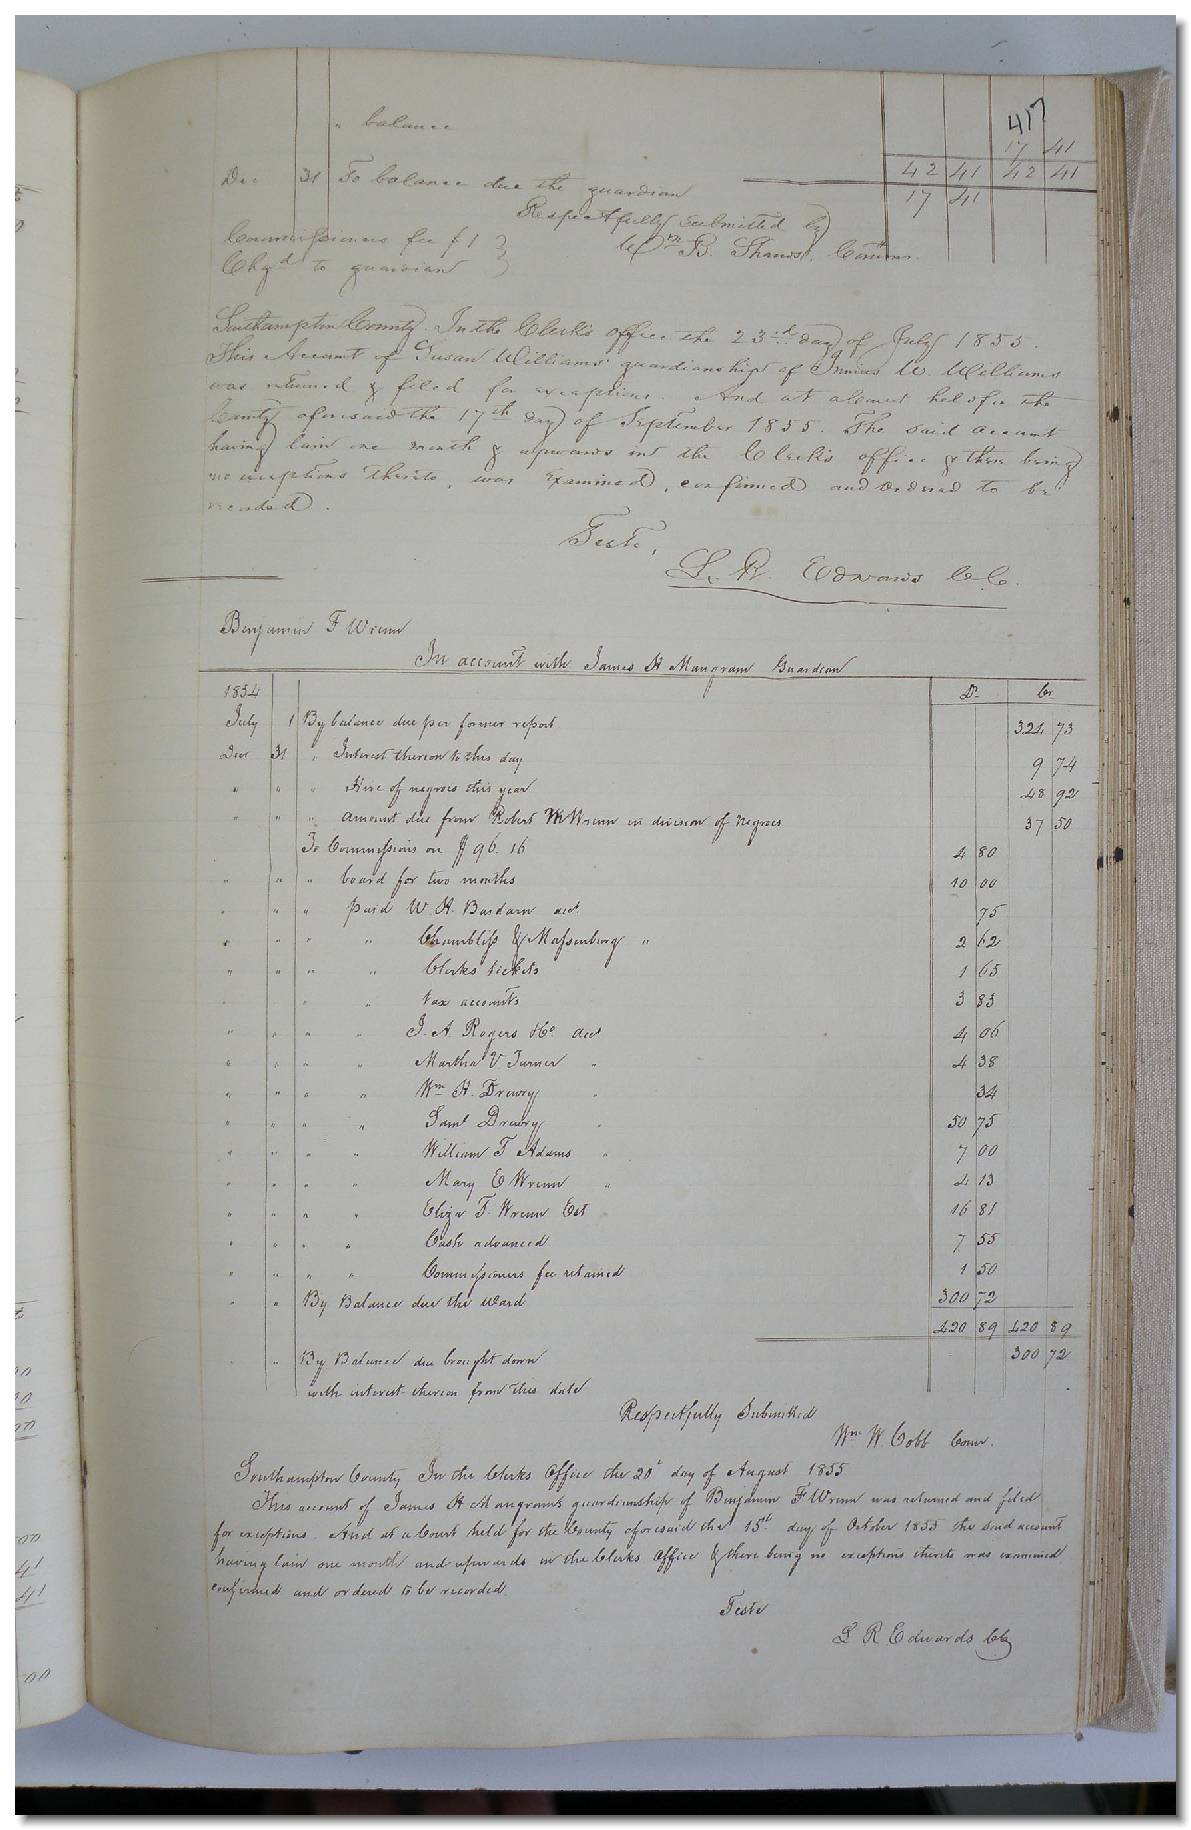 417
" balance 17 41
42 41 42 41
Dec 31 To balance due the guardian 17 41
Respectfully submitted by
Commissioners fee $1 } Wm B. Shands, Comm.
Chgd to guardian }
Southampton County. In the Clerk's office the 23rd day of July 1855.
This Account of Susan Williams' guardianship of W. Williams
was returned & filed for exceptions. And at a Court held for the
County aforesaid the 17th day of September 1855. The said account
having lain one month & upwards in the Clerk's office & there being
no exceptions thereto, was Examined, confirmed and ordered to be
recorded.
Teste,
L. R. Edwards C.C.
Benjamin F Wrenn
In account with James H Mangram Guardian
1854 Dr Cr
July 1 By balance due per former report 324 73
Dec 31 " Interest thereon to this day 9 74
" " " Hire of negroes this year 48 92
" " " amount due from Robert W Wrenn in division of negroes 37 50
To Commissions on $96.16 4 80
" " " board for two months 10 00
" " " paid W. H. Bardam act 75
" " " " Chambliss & Massenburg " 2 62
" " " " Clerks tickets 1 65
" " " tax accounts 3 83
" " " " J. A. Rogers &Co act 4 06
" " " " Martha V Turner " 4 38
" " " " Wm H. Drewry " 34
" " " " Saml Drewry " 50 75
" " " " William T Adams " 7 00
" " " " Mary E Wrenn " 4 13
" " " " Eliza T. Wrenn Est 16 81
" " " " Cash advanced 7 55
" " " " Commissioners fee retained 1 50
" " By Balance due the ward 300 72
420 89 420 89
" " By Balance due brought down 300 72
with interest thereon from this date
Respectfully Submitted
Wm W. Cobb Comr.
Southampton County In the Clerks Office the 20th day of August 1855
This account of James H Mangram's guardianship of Benjamin F Wrenn was returned and filed
for exceptions. And at a Court held for the County aforesaid the 15th day of October 1855 the said account
having lain one month and upwards in the Clerks Office & there being no exceptions thereto was examined
confirmed and ordered to be recorded.
Teste
L R Edwards CC